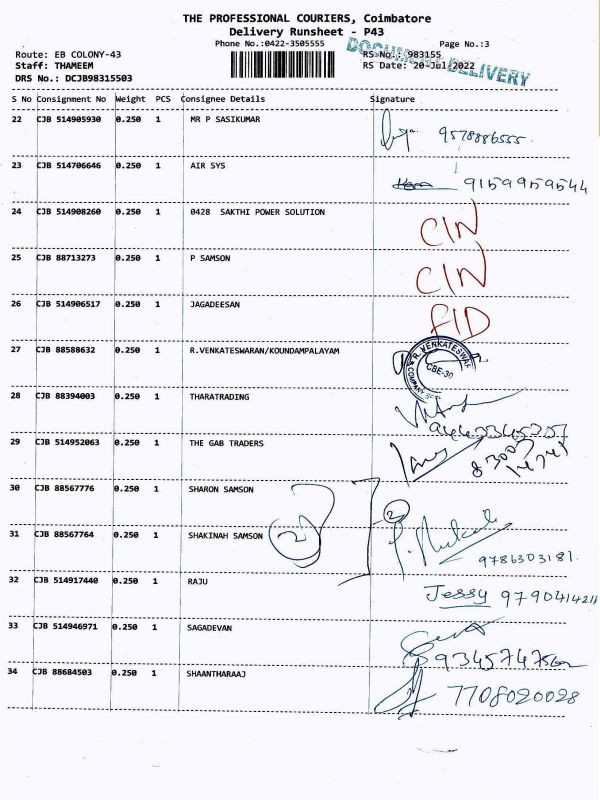 THE PROFESSIONAL COURIERS, Coimbatore
Delivery Runsheet - P43
Phone No.:0422-3505555 Page No.:3
DOCUMENT DELIVERY
Route: EB COLONY-43 RS No.: 983155
Staff: THAMEEM RS Date: 20-Jul-2022
DRS No.: DCJB98315503
S No Consignment No Weight PCS Consignee Details Signature
22 CJB 514905930 0.250 1 MR P SASIKUMAR 9578886555.
23 CJB 514706646 0.250 1 AIR SYS 9159959544
24 CJB 514908260 0.250 1 0428 SAKTHI POWER SOLUTION CIN
25 CJB 88713273 0.250 1 P SAMSON CIN
26 CJB 514906517 0.250 1 JAGADEESAN FID
27 CJB 88588632 0.250 1 R.VENKATESWARAN/KOUNDAMPALAYAM R. VENKATESWAR CBE-30
28 CJB 88394003 0.250 1 THARATRADING
29 CJB 514952063 0.250 1 THE GAB TRADERS
30 CJB 88567776 0.250 1 SHARON SAMSON 2
31 CJB 88567764 0.250 1 SHAKINAH SAMSON 2 9786303181.
32 CJB 514917440 0.250 1 RAJU Jessy 9790414211
33 CJB 514946971 0.250 1 SAGADEVAN
34 CJB 88684503 0.250 1 SHAANTHARAAJ 7708020028